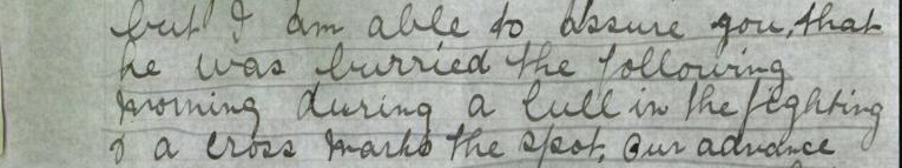 but I am able to assure you, that
he was burried the following
morning during a lull in the fighting
& a cross marks the spot, our advance